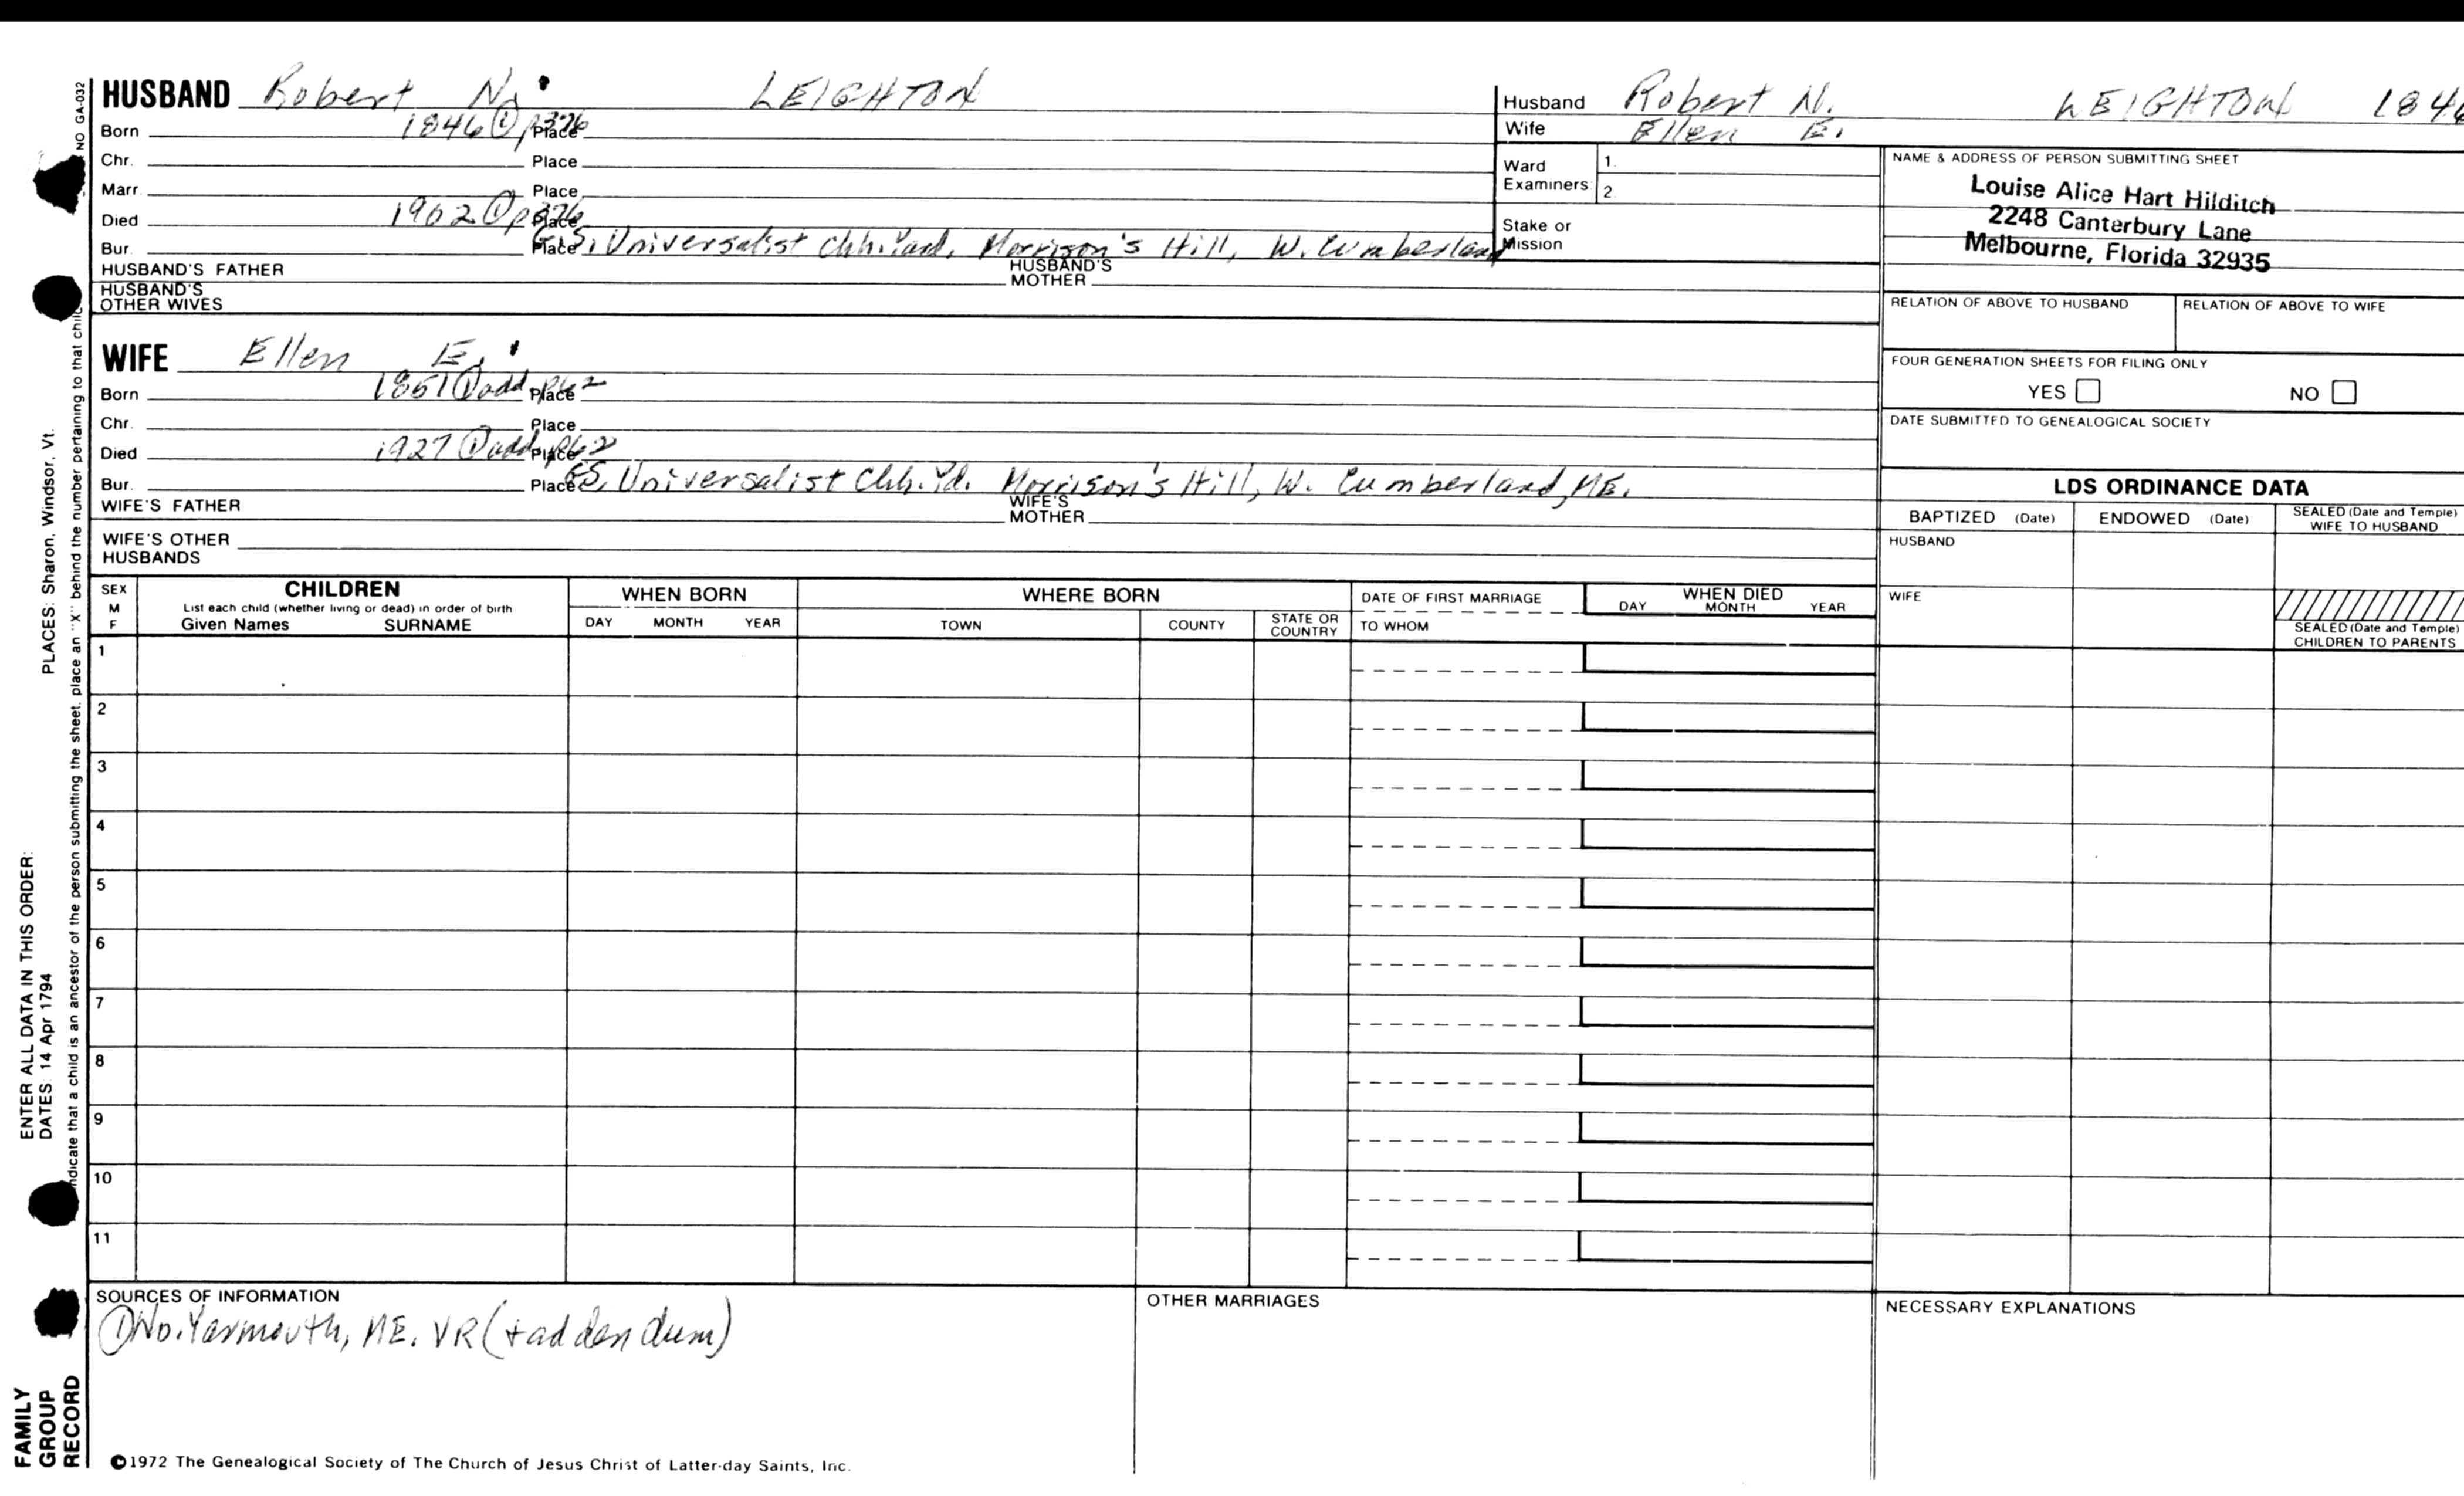 HUSBAND Robert N. LEIGHTON
Born 1846 ① p376 Place
Chr. Place
Marr. Place
Died 1902 ① p376 Place
Bur. Place G.S. Universalist Chh. Yard, Morrison's Hill, W. Cumberland
HUSBAND'S FATHER HUSBAND'S MOTHER
HUSBAND'S OTHER WIVES
WIFE Ellen E.
Born 1851 ① add. p62 Place
Chr. Place
Died 1927 ① add. p62 Place
Bur. Place GS, Universalist Chh. Yd. Morrison's Hill, W. Cumberland, ME.
WIFE'S FATHER WIFE'S MOTHER
WIFE'S OTHER HUSBANDS
Husband Robert N. LEIGHTON 184
Wife Ellen E.
Ward Examiners 1.
2.
Stake or Mission
NAME & ADDRESS OF PERSON SUBMITTING SHEET
Louise Alice Hart Hilditch
2248 Canterbury Lane
Melbourne, Florida 32935
RELATION OF ABOVE TO HUSBAND RELATION OF ABOVE TO WIFE
FOUR GENERATION SHEETS FOR FILING ONLY
YES NO
DATE SUBMITTED TO GENEALOGICAL SOCIETY
LDS ORDINANCE DATA
BAPTIZED (Date) ENDOWED (Date) SEALED (Date and Temple) WIFE TO HUSBAND
HUSBAND
WIFE
SEALED (Date and Temple) CHILDREN TO PARENTS
SEX M F
CHILDREN
List each child (whether living or dead) in order of birth
Given Names SURNAME
WHEN BORN
DAY MONTH YEAR
WHERE BORN
TOWN COUNTY STATE OR COUNTRY
DATE OF FIRST MARRIAGE
TO WHOM
WHEN DIED
DAY MONTH YEAR
1
2
3
4
5
6
7
8
9
10
11
SOURCES OF INFORMATION
① No. Yarmouth, ME. VR (+ addendum)
OTHER MARRIAGES
NECESSARY EXPLANATIONS
©1972 The Genealogical Society of The Church of Jesus Christ of Latter-day Saints, Inc.
FAMILY
GROUP
RECORD
ENTER ALL DATA IN THIS ORDER:
DATES 14 Apr 1794 PLACES: Sharon, Windsor, Vt.
ndicate that a child is an ancestor of the person submitting the sheet, place an "X" behind the number pertaining to that child
NO GA-032